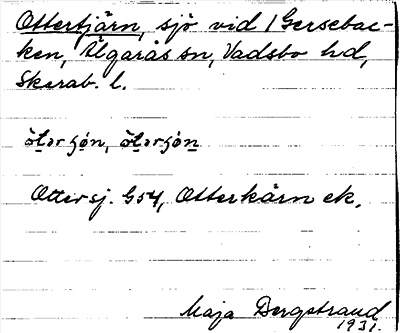 Ottertjärn, sjö vid / Gersebac-
ken, Älgarås sn, Vadsbo hd,
Skarab. l.
Ottersj. G54, Otterkärn ek.
Maja Bergstrand
1931.